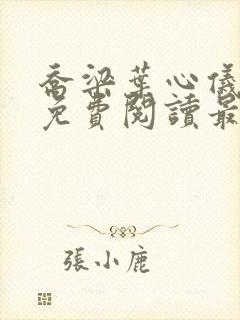 喬梁葉心儀
免費閱讀最
張小鹿